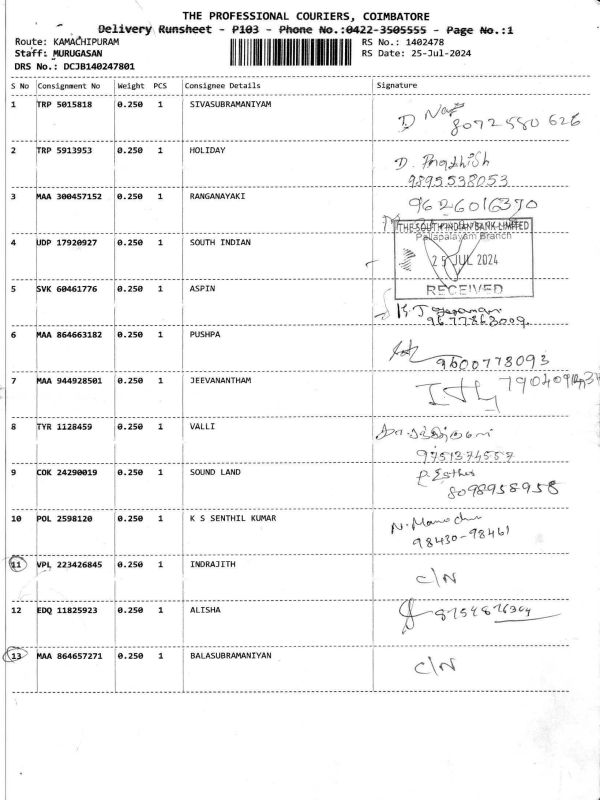 THE PROFESSIONAL COURIERS, COIMBATORE
Delivery Runsheet - P103 - Phone No.:0422-3505555 - Page No.:1
Route: KAMACHIPURAM RS No.: 1402478
Staff: MURUGASAN RS Date: 25-Jul-2024
DRS No.: DCJB140247801
S No Consignment No Weight PCS Consignee Details Signature
1 TRP 5015818 0.250 1 SIVASUBRAMANIYAM
8072580626
2 TRP 5913953 0.250 1 HOLIDAY
9895538053
3 MAA 300457152 0.250 1 RANGANAYAKI 9626016370
THE SOUTH INDIAN BANK LIMITED
Pallapalayam Branch
4 UDP 17920927 0.250 1 SOUTH INDIAN
25 JUL 2024
RECEIVED
5 SVK 60461776 0.250 1 ASPIN
9677863009
6 MAA 864663182 0.250 1 PUSHPA
9600773093
7 MAA 944928501 0.250 1 JEEVANANTHAM
8 TYR 1128459 0.250 1 VALLI
9751374557
9 COK 24290019 0.250 1 SOUND LAND
P. Esther
8098958958
10 POL 2598120 0.250 1 K S SENTHIL KUMAR
98430-98461
11 VPL 223426845 0.250 1 INDRAJITH
C/N
12 EDQ 11825923 0.250 1 ALISHA
13 MAA 864657271 0.250 1 BALASUBRAMANIYAN
C/N